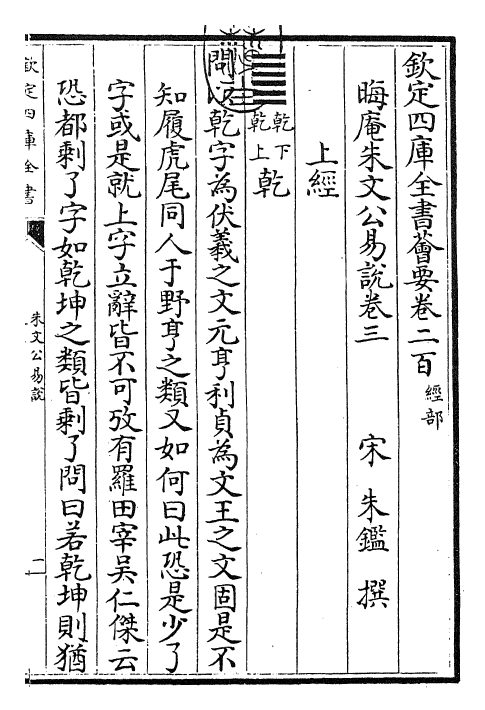 欽定四庫全書薈要卷二百 經部
晦庵朱文公易說卷三 宋 朱鑑 撰
上經
乾下
乾上
乾
問 乾字為伏羲之文元亨利貞為文王之文固是不
知履虎尾同人于野亨之類又如何曰此恐是少了
字或是就上字立辭皆不可攷有羅田宰吳仁傑云
恐都剩了字如乾坤之類皆剩了問曰若乾坤則猶
欽定四庫全書
朱文公易說